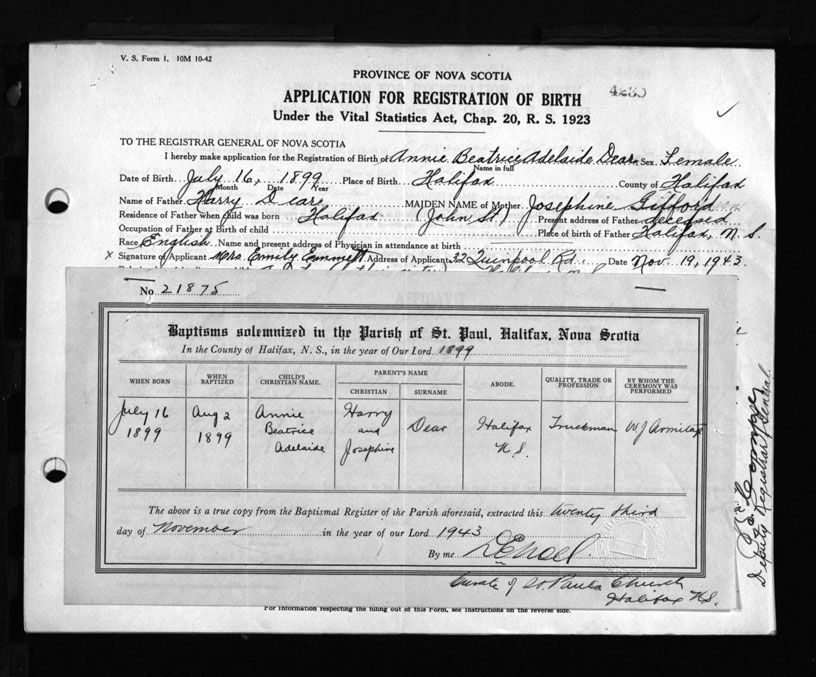 V. S. Form 1. 10M 10-42
PROVINCE OF NOVA SCOTIA
APPLICATION FOR REGISTRATION OF BIRTH
Under the Vital Statistics Act, Chap. 20, R. S. 1923
TO THE REGISTRAR GENERAL OF NOVA SCOTIA
I hereby make application for the Registration of Birth of Annie Beatrice Adelaide Dear Sex Female
Name in full
Date of Birth July 16, 1899 Place of Birth Halifax County of Halifax
Month Date Year
Name of Father Harry Dear MAIDEN NAME of Mother Josephine Gifford
Residence of Father when child was born Halifax (John St) Present address of Father deceased
Occupation of Father at Birth of child Place of birth of Father Halifax, N.S.
Race English Name and present address of Physician in attendance at birth
x Signature of Applicant Mrs. Emily Emmett Address of Applicant 32 Quinpool Rd. Date Nov. 19, 1943
No 21875
Baptisms solemnized in the Parish of St. Paul, Halifax, Nova Scotia
In the County of Halifax, N. S., in the year of Our Lord 1899
WHEN BORN WHEN BAPTIZED CHILD'S CHRISTIAN NAME. PARENT'S NAME CHRISTIAN SURNAME ABODE. QUALITY, TRADE OR PROFESSION BY WHOM THE CEREMONY WAS PERFORMED
July 16 Aug 2 Annie Harry Dear Halifax Truckman W J Armitage
1899 1899 Beatrice and N.S.
Adelaide Josephine
The above is a true copy from the Baptismal Register of the Parish aforesaid, extracted this twenty third
day of November in the year of our Lord 1943
By me
Curate of St. Pauls Church
Halifax N.S.
Deputy Registrar General.
For information respecting the filling out of this Form, see Instructions on the reverse side.